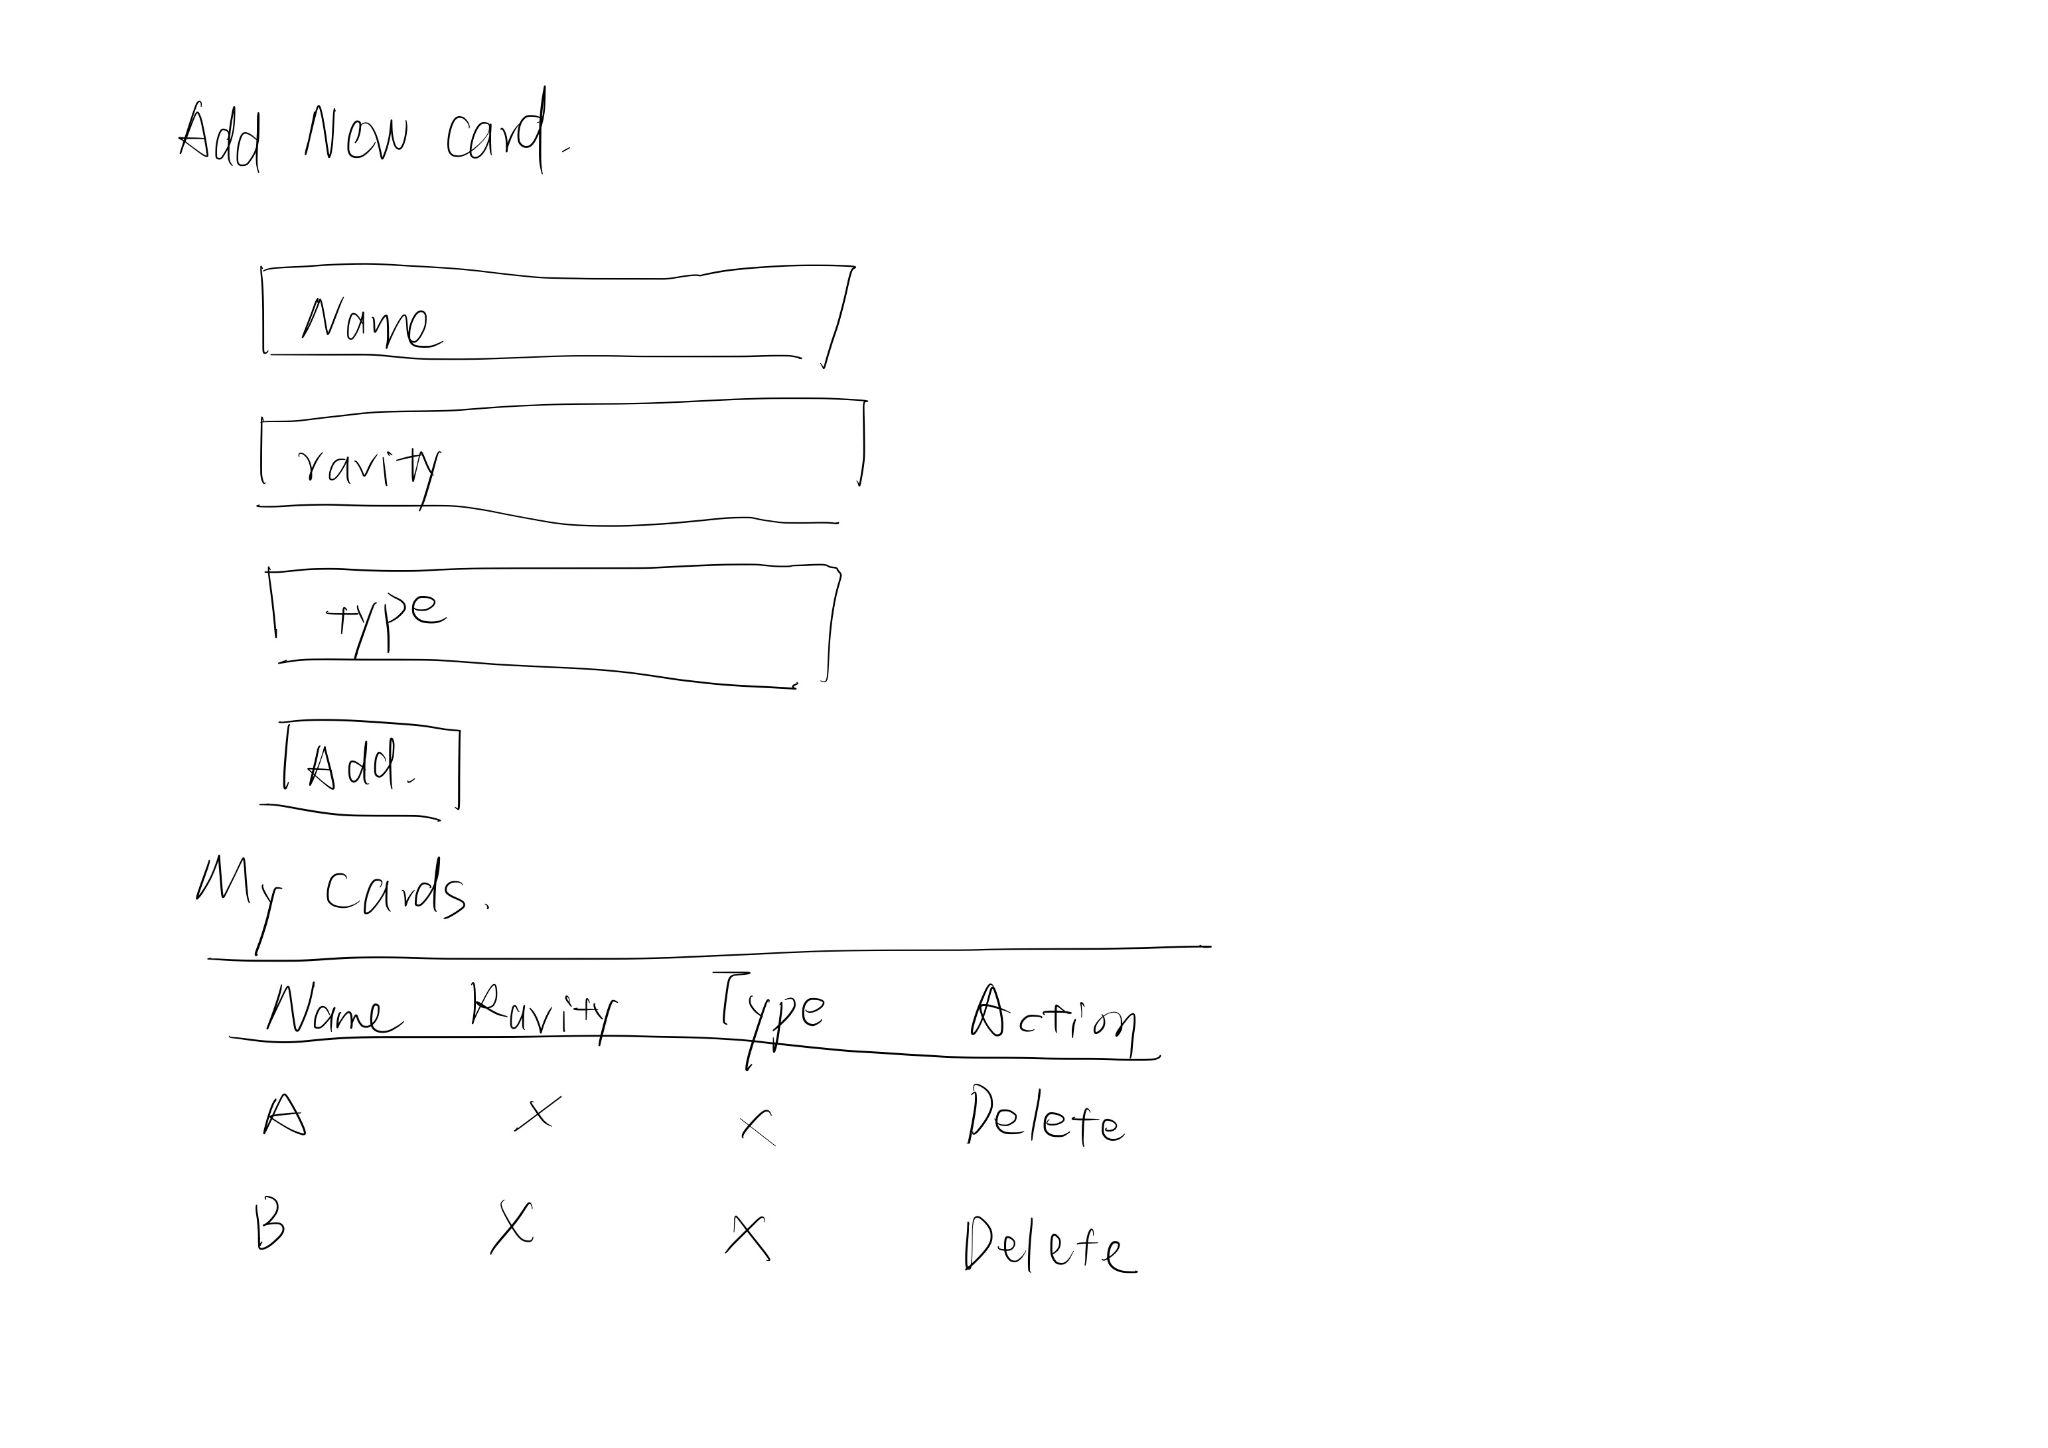 Add New card.
Name
rarity
type
Add.
My Cards.
Name Rarity Type Action
A X X Delete
B X X Delete